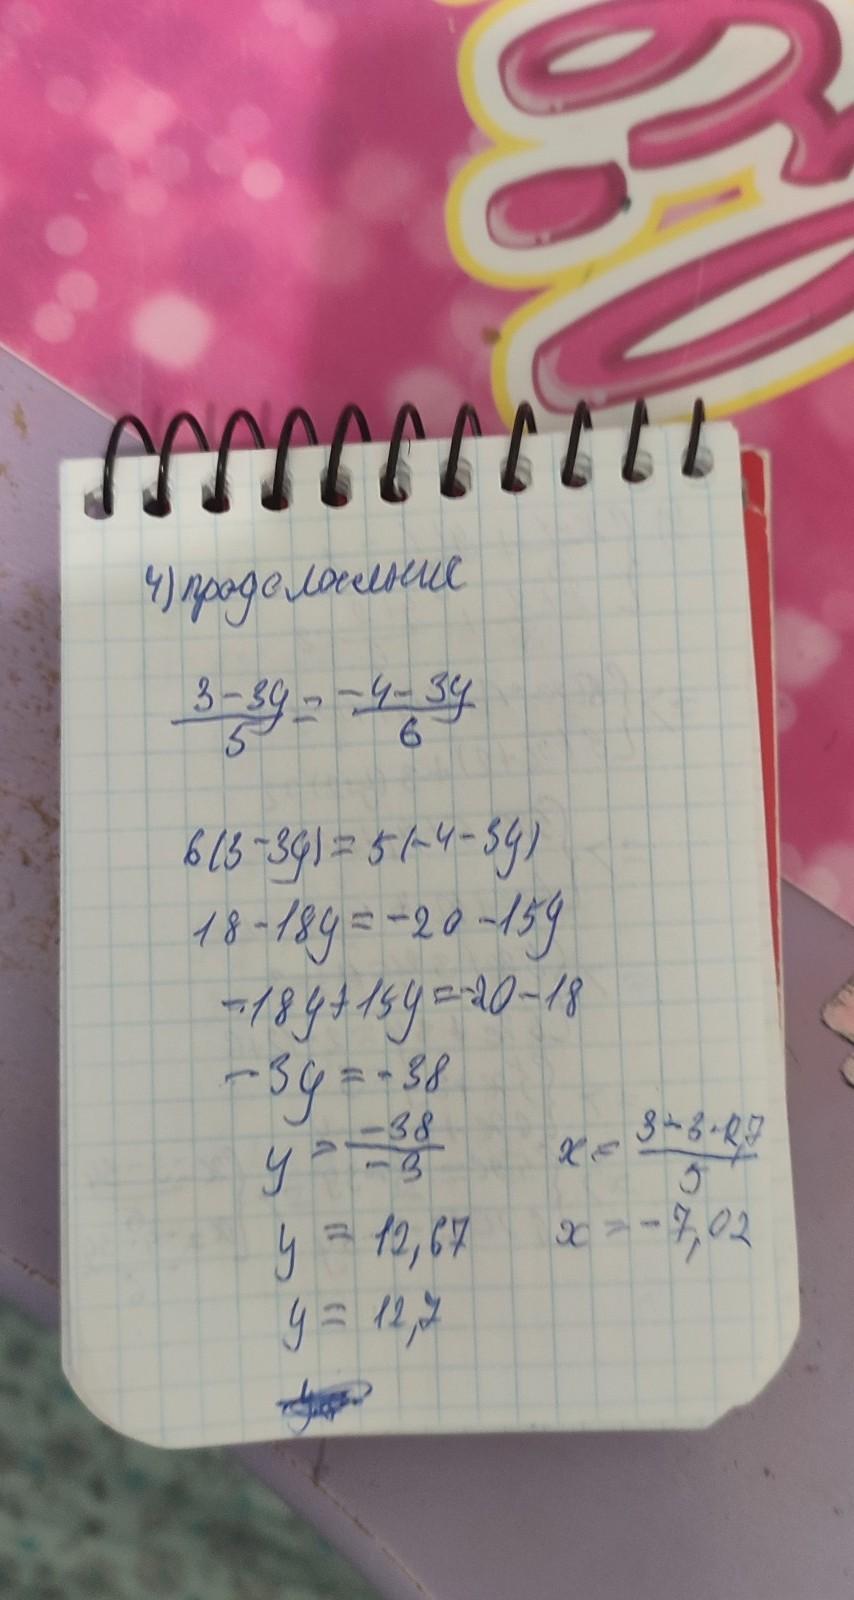 4) продолжение
3-3y/5 = -4-3y/6
6(3-3y) = 5(-4-3y)
18-18y = -20-15y
-18y+15y = -20-18
-3y = -38
y = -38/-3
y = 12,67
y = 12,7
x = 3-3·12,7/5
x = -7,02